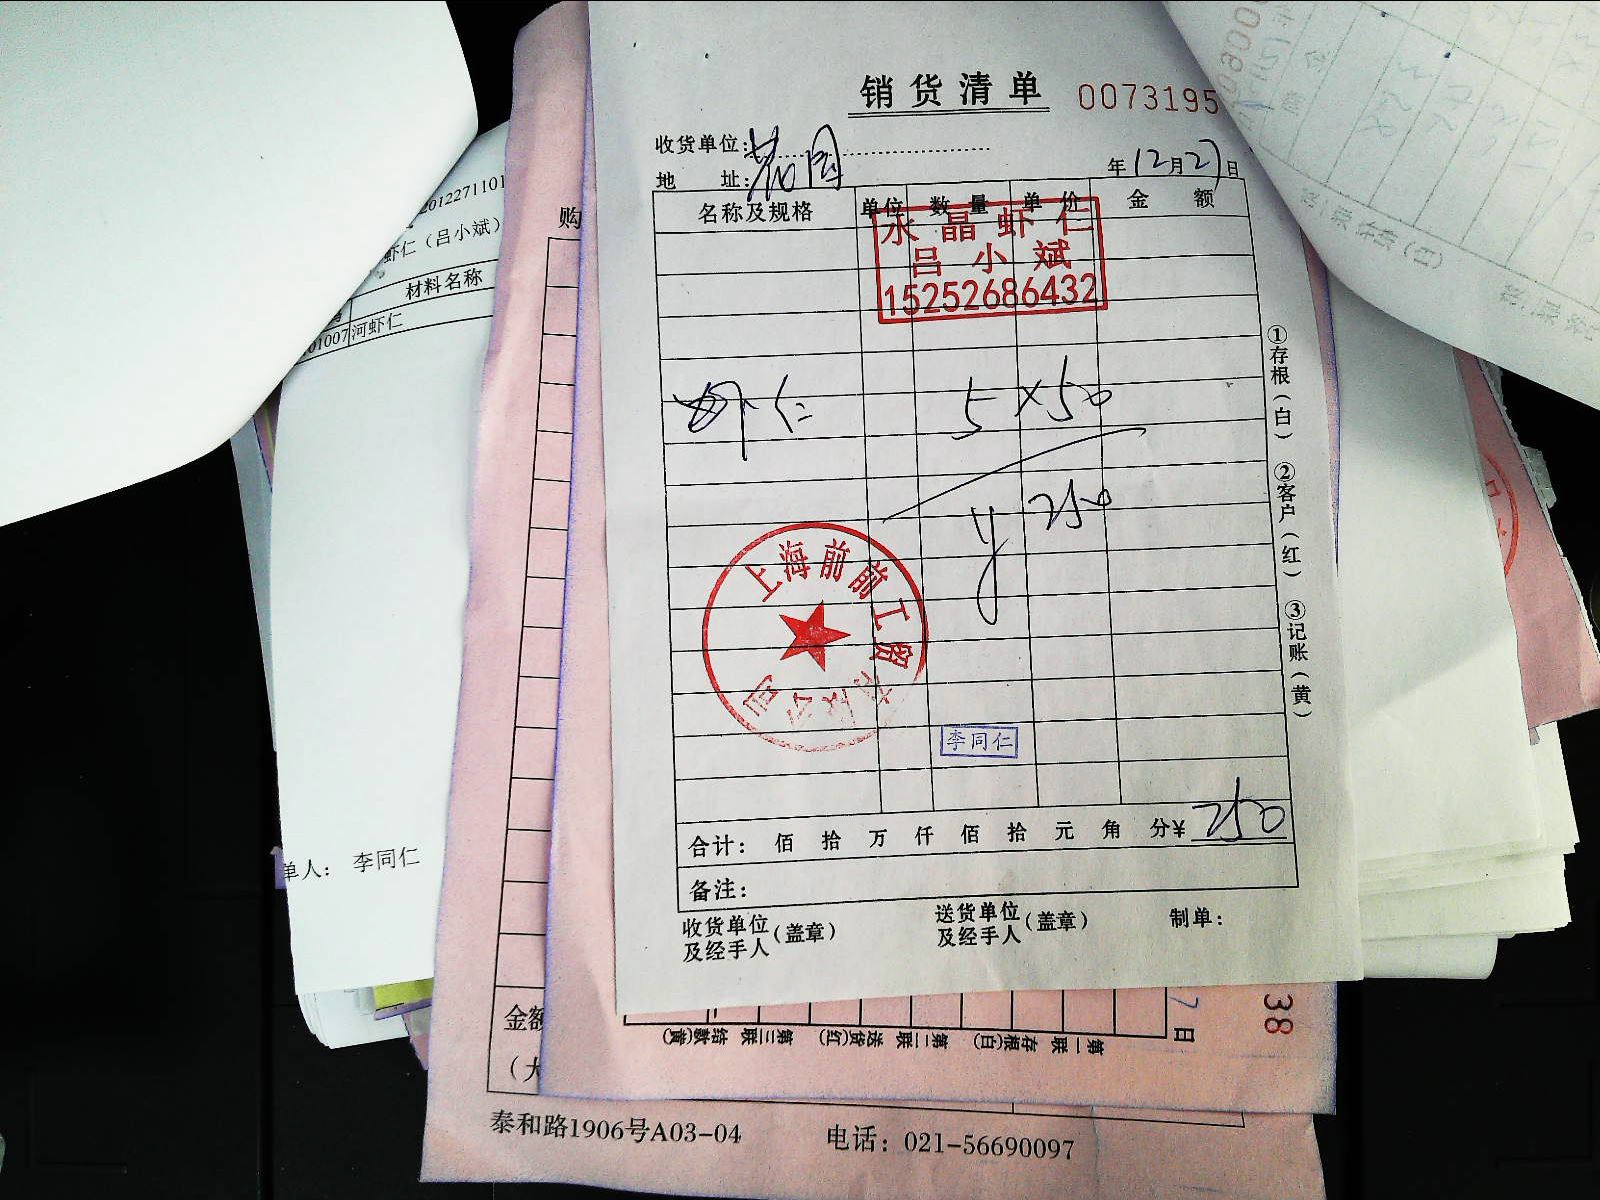 销货清单 0073195
收货单位: 花园
地 址:
年12月27日
名称及规格 单位 数量 单价 金额
水晶虾仁
吕小斌
15252686432
虾仁 5×50
¥250
上海前前工贸有限公司
李同仁
合计: 佰 拾 万 仟 佰 拾 元 角 分¥ 250
备注:
收货单位及经手人(盖章) 送货单位及经手人(盖章) 制单:
①存根(白) ②客户(红) ③记账(黄)
2012271101
虾仁(吕小斌)
材料名称
01007 河虾仁
单人: 李同仁
购
金额
(大
7日
38
第一联 存根(白) 第二联 送货(红) 第三联 结款(黄)
泰和路1906号A03-04 电话: 021-56690097